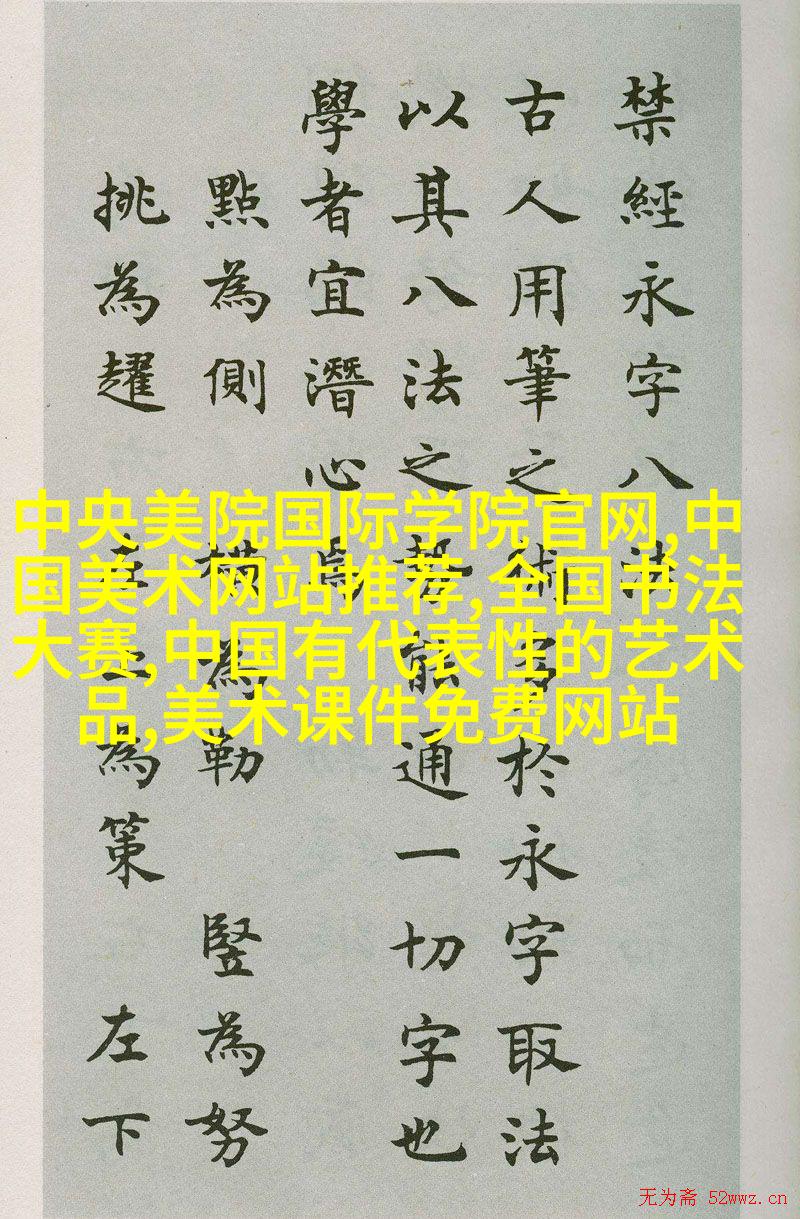 禁經永字八法
古人用筆之術多於永字取法
以其八法之勢能通一切字也
學者宜潛心焉
點為側 橫為勒 豎為努
挑為趯 左上為策 左下
中央美院国际学院官网,中
国美术网站推荐,全国书法
大赛,中国有代表性的艺术
品,美术课件免费网站
无为斋 52wwz.cn